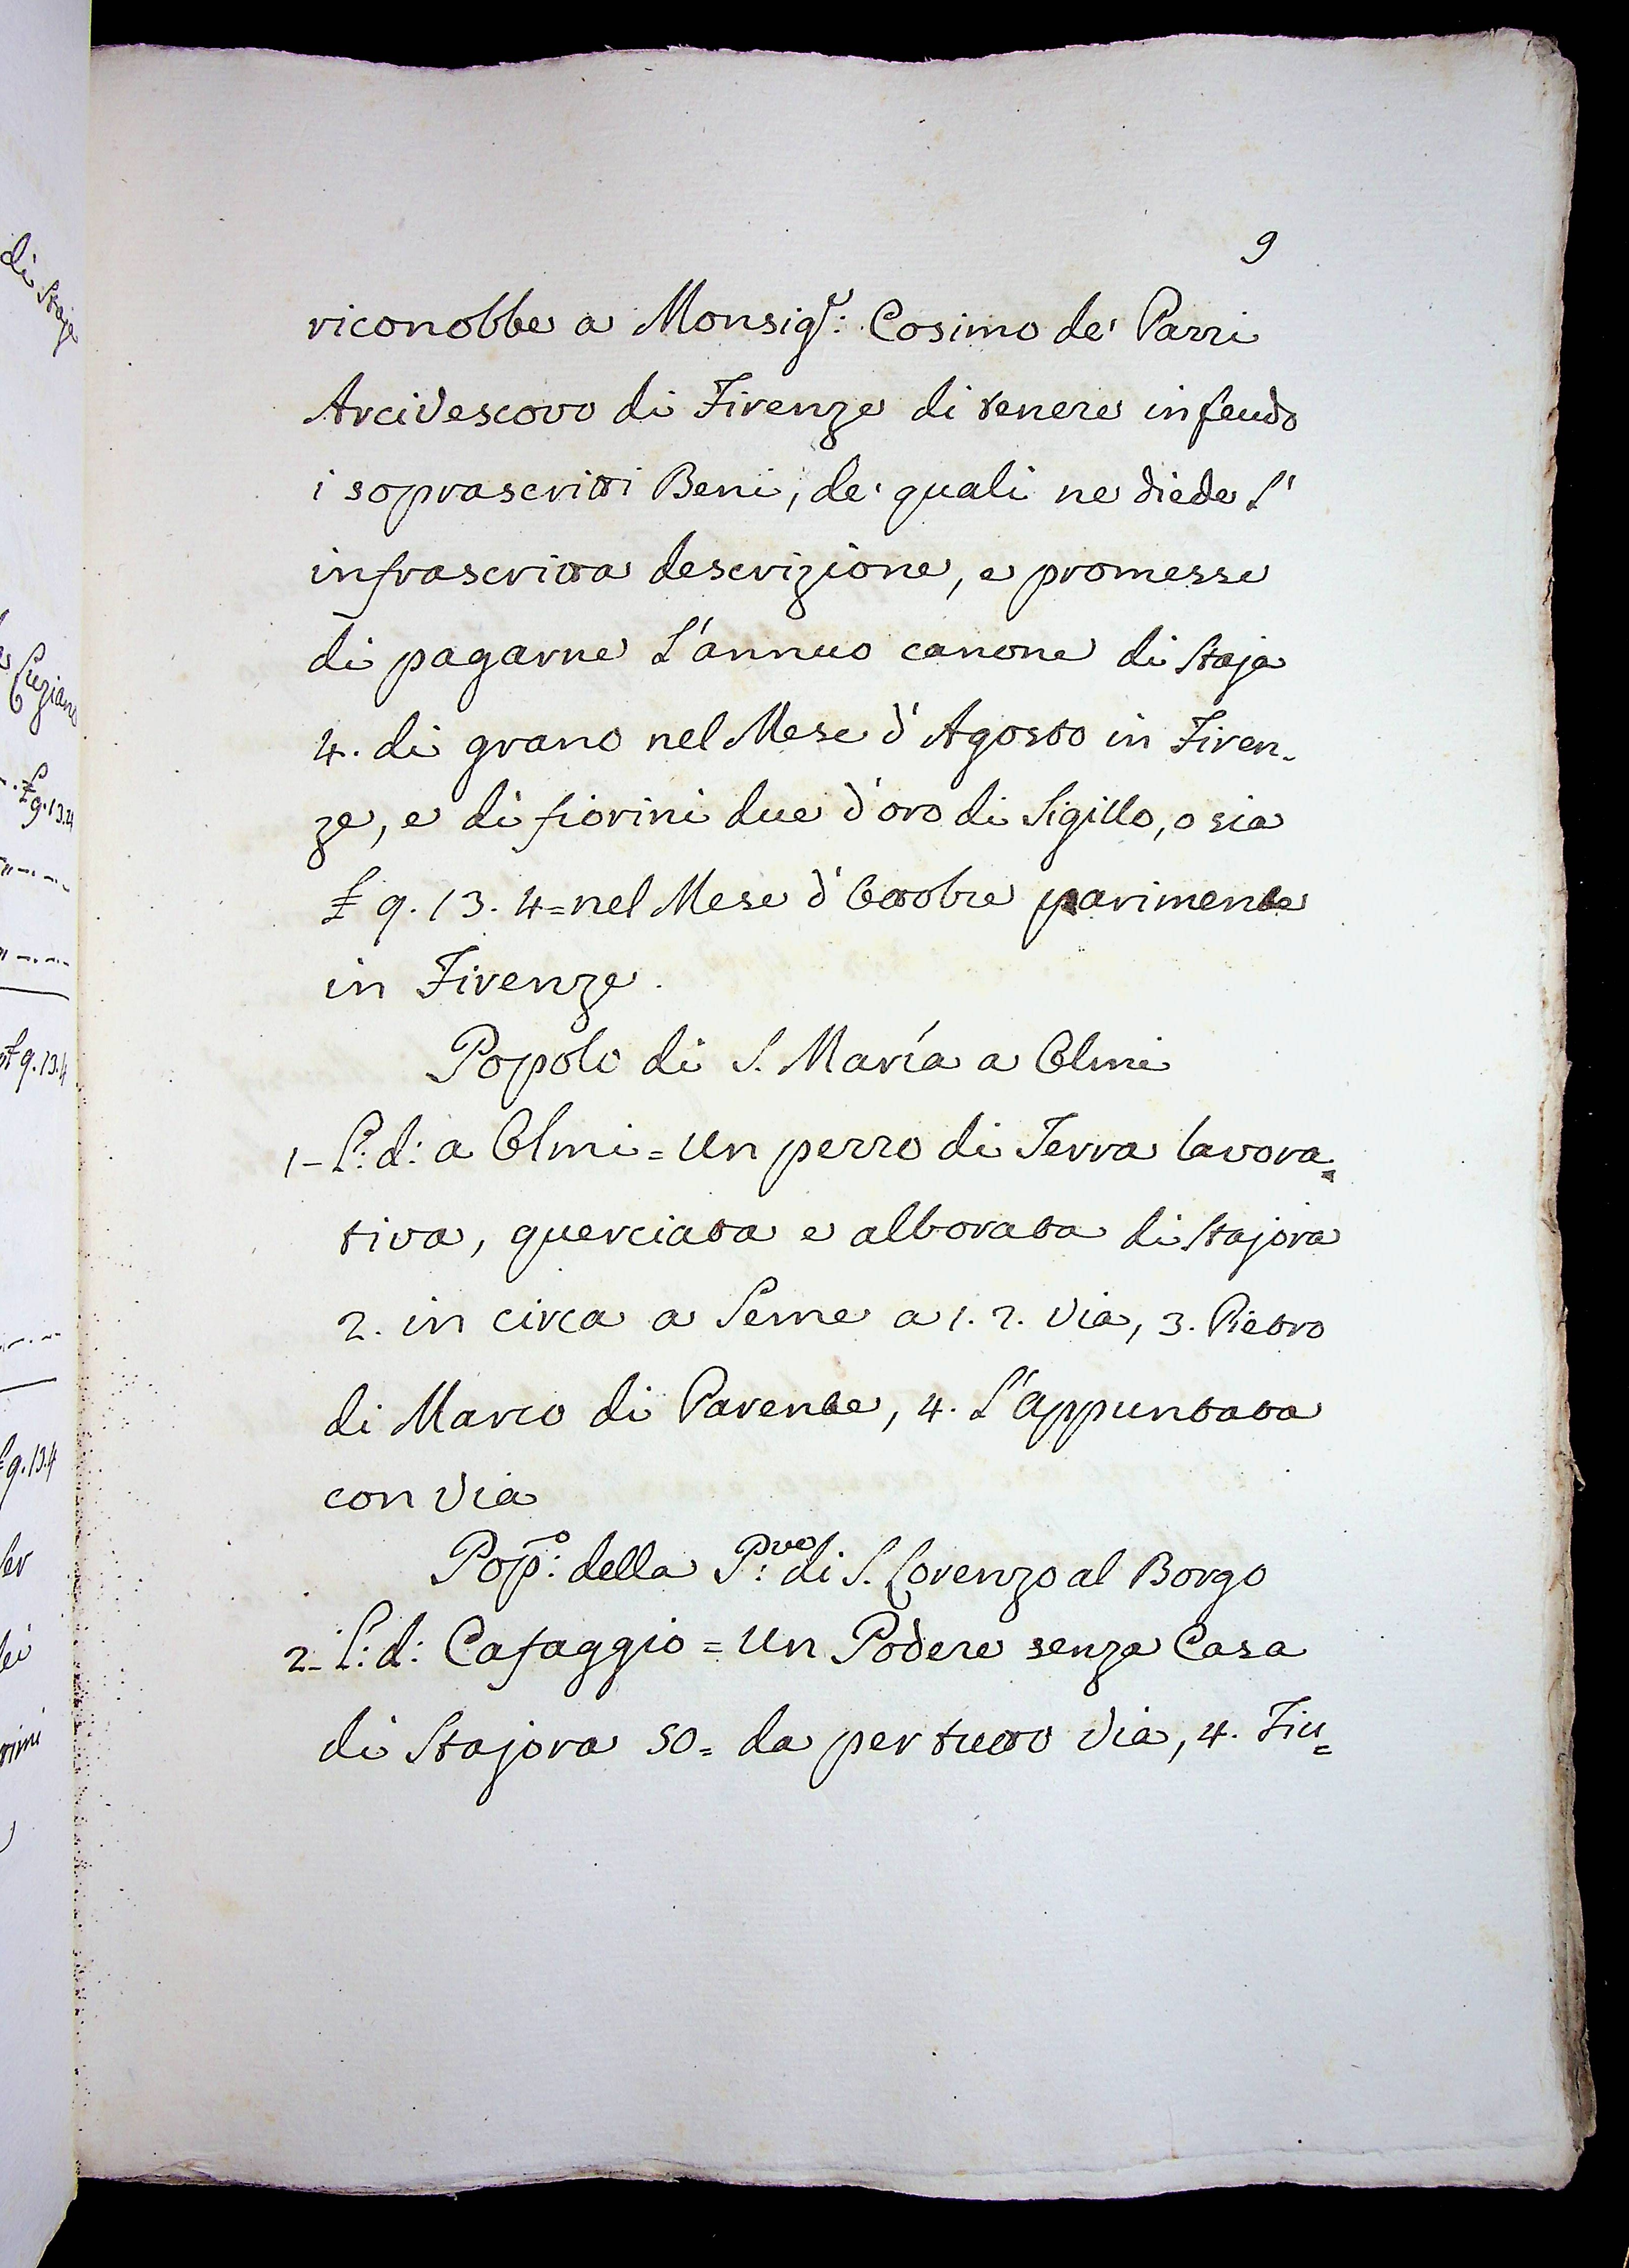 di Staje
Luziano
£ 9.13.4
£ 9.13.4
£ 9.13.4
Ser
9
riconobbe a Monsig.r: Cosimo de' Pazzi
Arcivescovo di Firenze di tenere in feudo
i soprascritti Beni, de' quali ne diede l'
infrascritta descrizione, e promesse
di pagarne l'annuo canone di Staja
4. di grano nel Mese d'Agosto in Firen-
ze, e di fiorini due d'oro di Sigillo, o sia
£ 9. 13. 4= nel Mese d'Ottobre parimente
in Firenze.
Popolo di S. Maria a Olmi
1- L: d: a Olmi = Un pezzo di Terra lavora=
tiva, querciata e alborata di Stajora
2. in circa a Seme a 1. 2. Via, 3. Pietro
di Marco di Parente, 4. L'appuntata
con Via
Pop:o della P:ve di S. Lorenzo al Borgo
2- L: d: Cafaggio = Un Podere senza Casa
di Stajora 50= da per tutto Via, 4. Fiu=